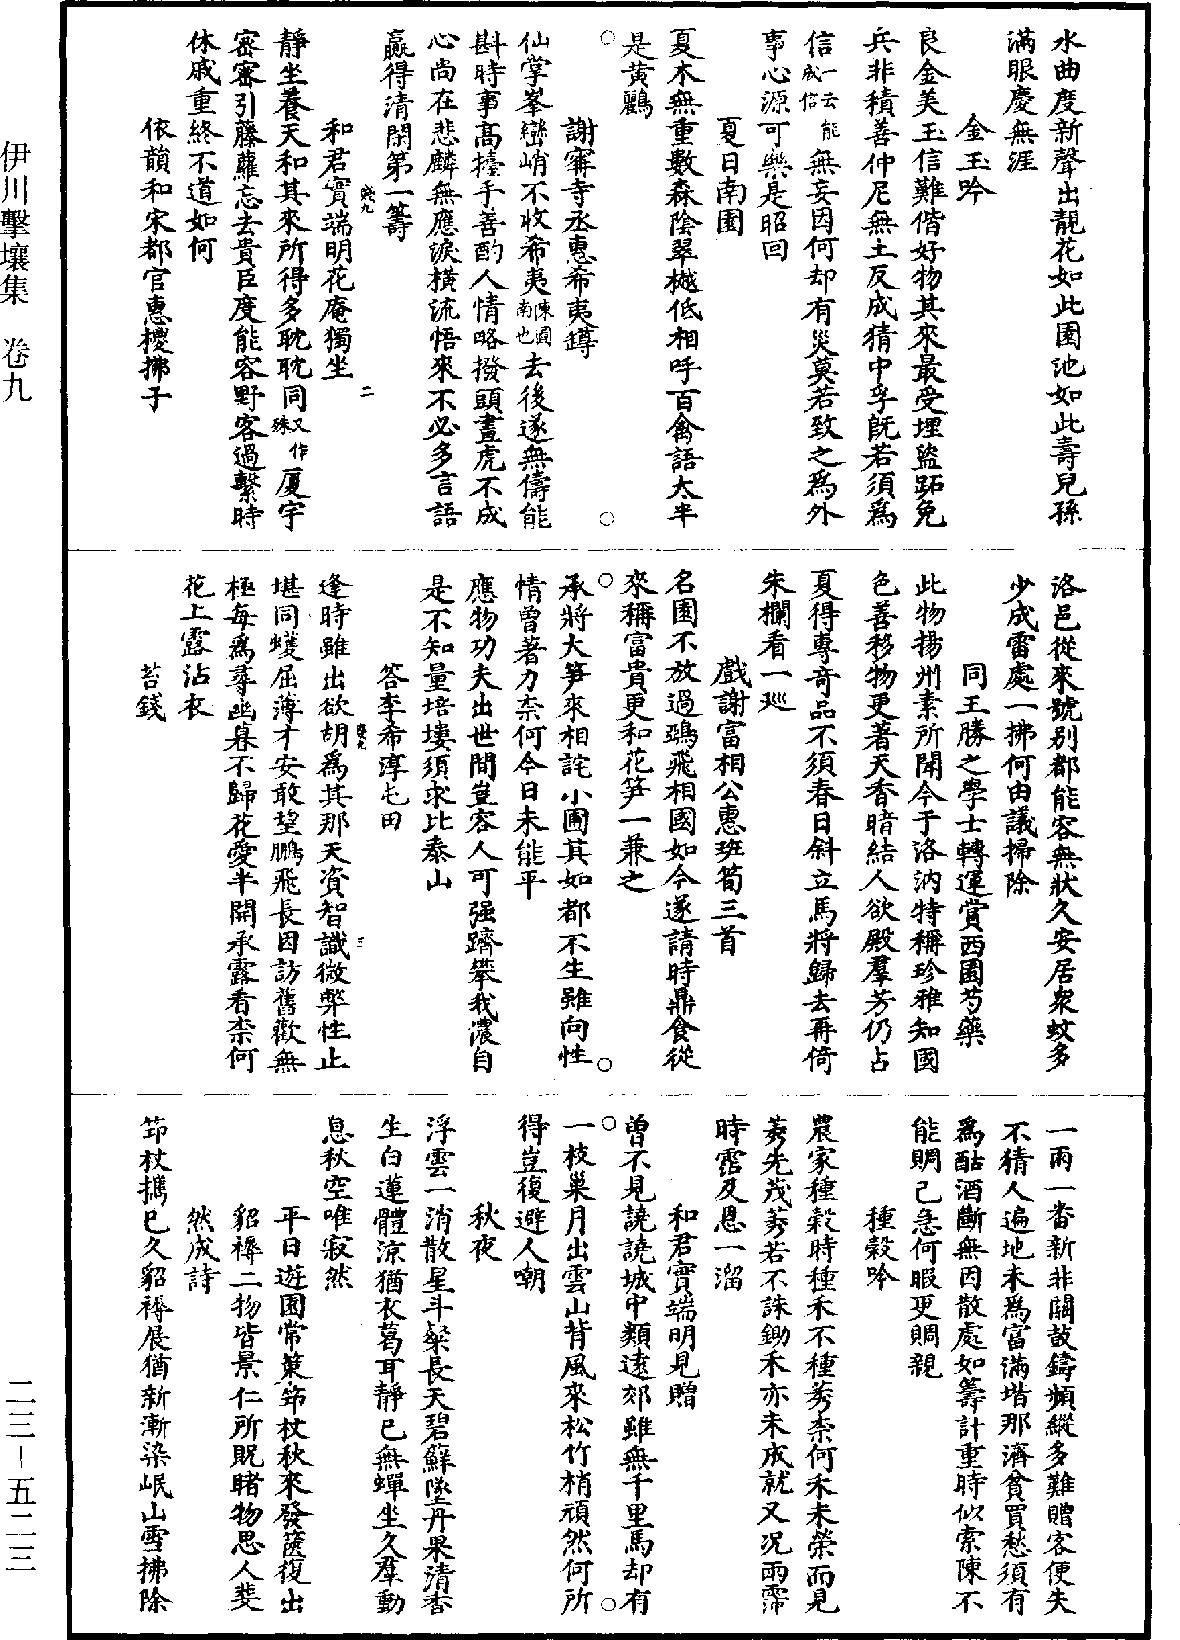 伊川擊壤集　卷九
二三－五二三
水曲度新聲出靚花如此園池如此壽兒孫
滿眼慶無涯
金玉吟
良金美玉信難偕好物其來最受埋盜跖免
兵非積善仲尼無土反成猜中孚旣若須爲
信一云能成信無妄因何却有災莫若致之爲外
事心源可樂是昭回
夏日南園
夏木無重數森陰翠樾低相呼百禽語太半
是黃鸝
謝寗寺丞惠希夷罇
仙掌峯巒峭不收希夷陳圖南也去後遂無儔能
斟時事高擡手善酌人情略撥頭畫虎不成
心尚在悲麟無應淚橫流悟來不必多言語
贏得清閑第一籌
和君實端明花庵獨坐
靜坐養天和其來所得多耽耽同又作殊厦宇
密密引藤蘿忘去貴臣度能容野客過繫時
休戚重終不道如何
依韻和宋都官惠㯶拂子
洛邑從來號別都能容無狀久安居衆蚊多
少成雷處一拂何由議掃除
同王勝之學士轉運賞西園芍藥
此物揚州素所聞今于洛汭特稱珍雅知國
色善移物更著天香暗結人欲殿羣芳仍占
夏得專奇品不須春日斜立馬將歸去再倚
朱欄看一巡
戲謝富相公惠班筍三首
名園不放過鵶飛相國如今遂請時鼎食從
來稱富貴更和花笋一兼之
承將大笋來相詫小圃其如都不生雖向性
情曾著力柰何今日未能平
應物功夫出世間豈容人可强躋攀我儂自
是不知量培塿須求比泰山
答李希淳屯田
逢時雖出欲胡爲其那天資智識微弊性止
堪同蠖屈薄才安敢望鵬飛長因訪舊歡無
極每爲尋幽暮不歸花愛半開承露看柰何
花上露沾衣
苔錢
一雨一畨新非關鼓鑄頻縱多難贈客便失
不猜人遍地未爲富滿堦那濟貧買愁須有
爲酤酒斷無因散處如籌計重時似索陳不
能賙己急何暇更賙親
種穀吟
農家種穀時種禾不種莠柰何禾未榮而見
莠先茂莠若不誅鋤禾亦未成就又况雨霈
時霑及恩一溜
和君實端明見贈
曾不見譊譊城中類遠郊雖無千里馬却有
一枝巢月出雲山背風來松竹梢頑然何所
得豈復避人嘲
秋夜
浮雲一消散星斗粲長天碧蘚墜丹果清香
生白蓮體涼猶衣葛耳靜已無蟬坐久羣動
息秋空唯寂然
平日遊園常策笻杖秋來發篋復出
貂褥二物皆景仁所貺睹物思人斐
然成詩
笻杖擕已久貂褥展猶新漸染岷山雪拂除